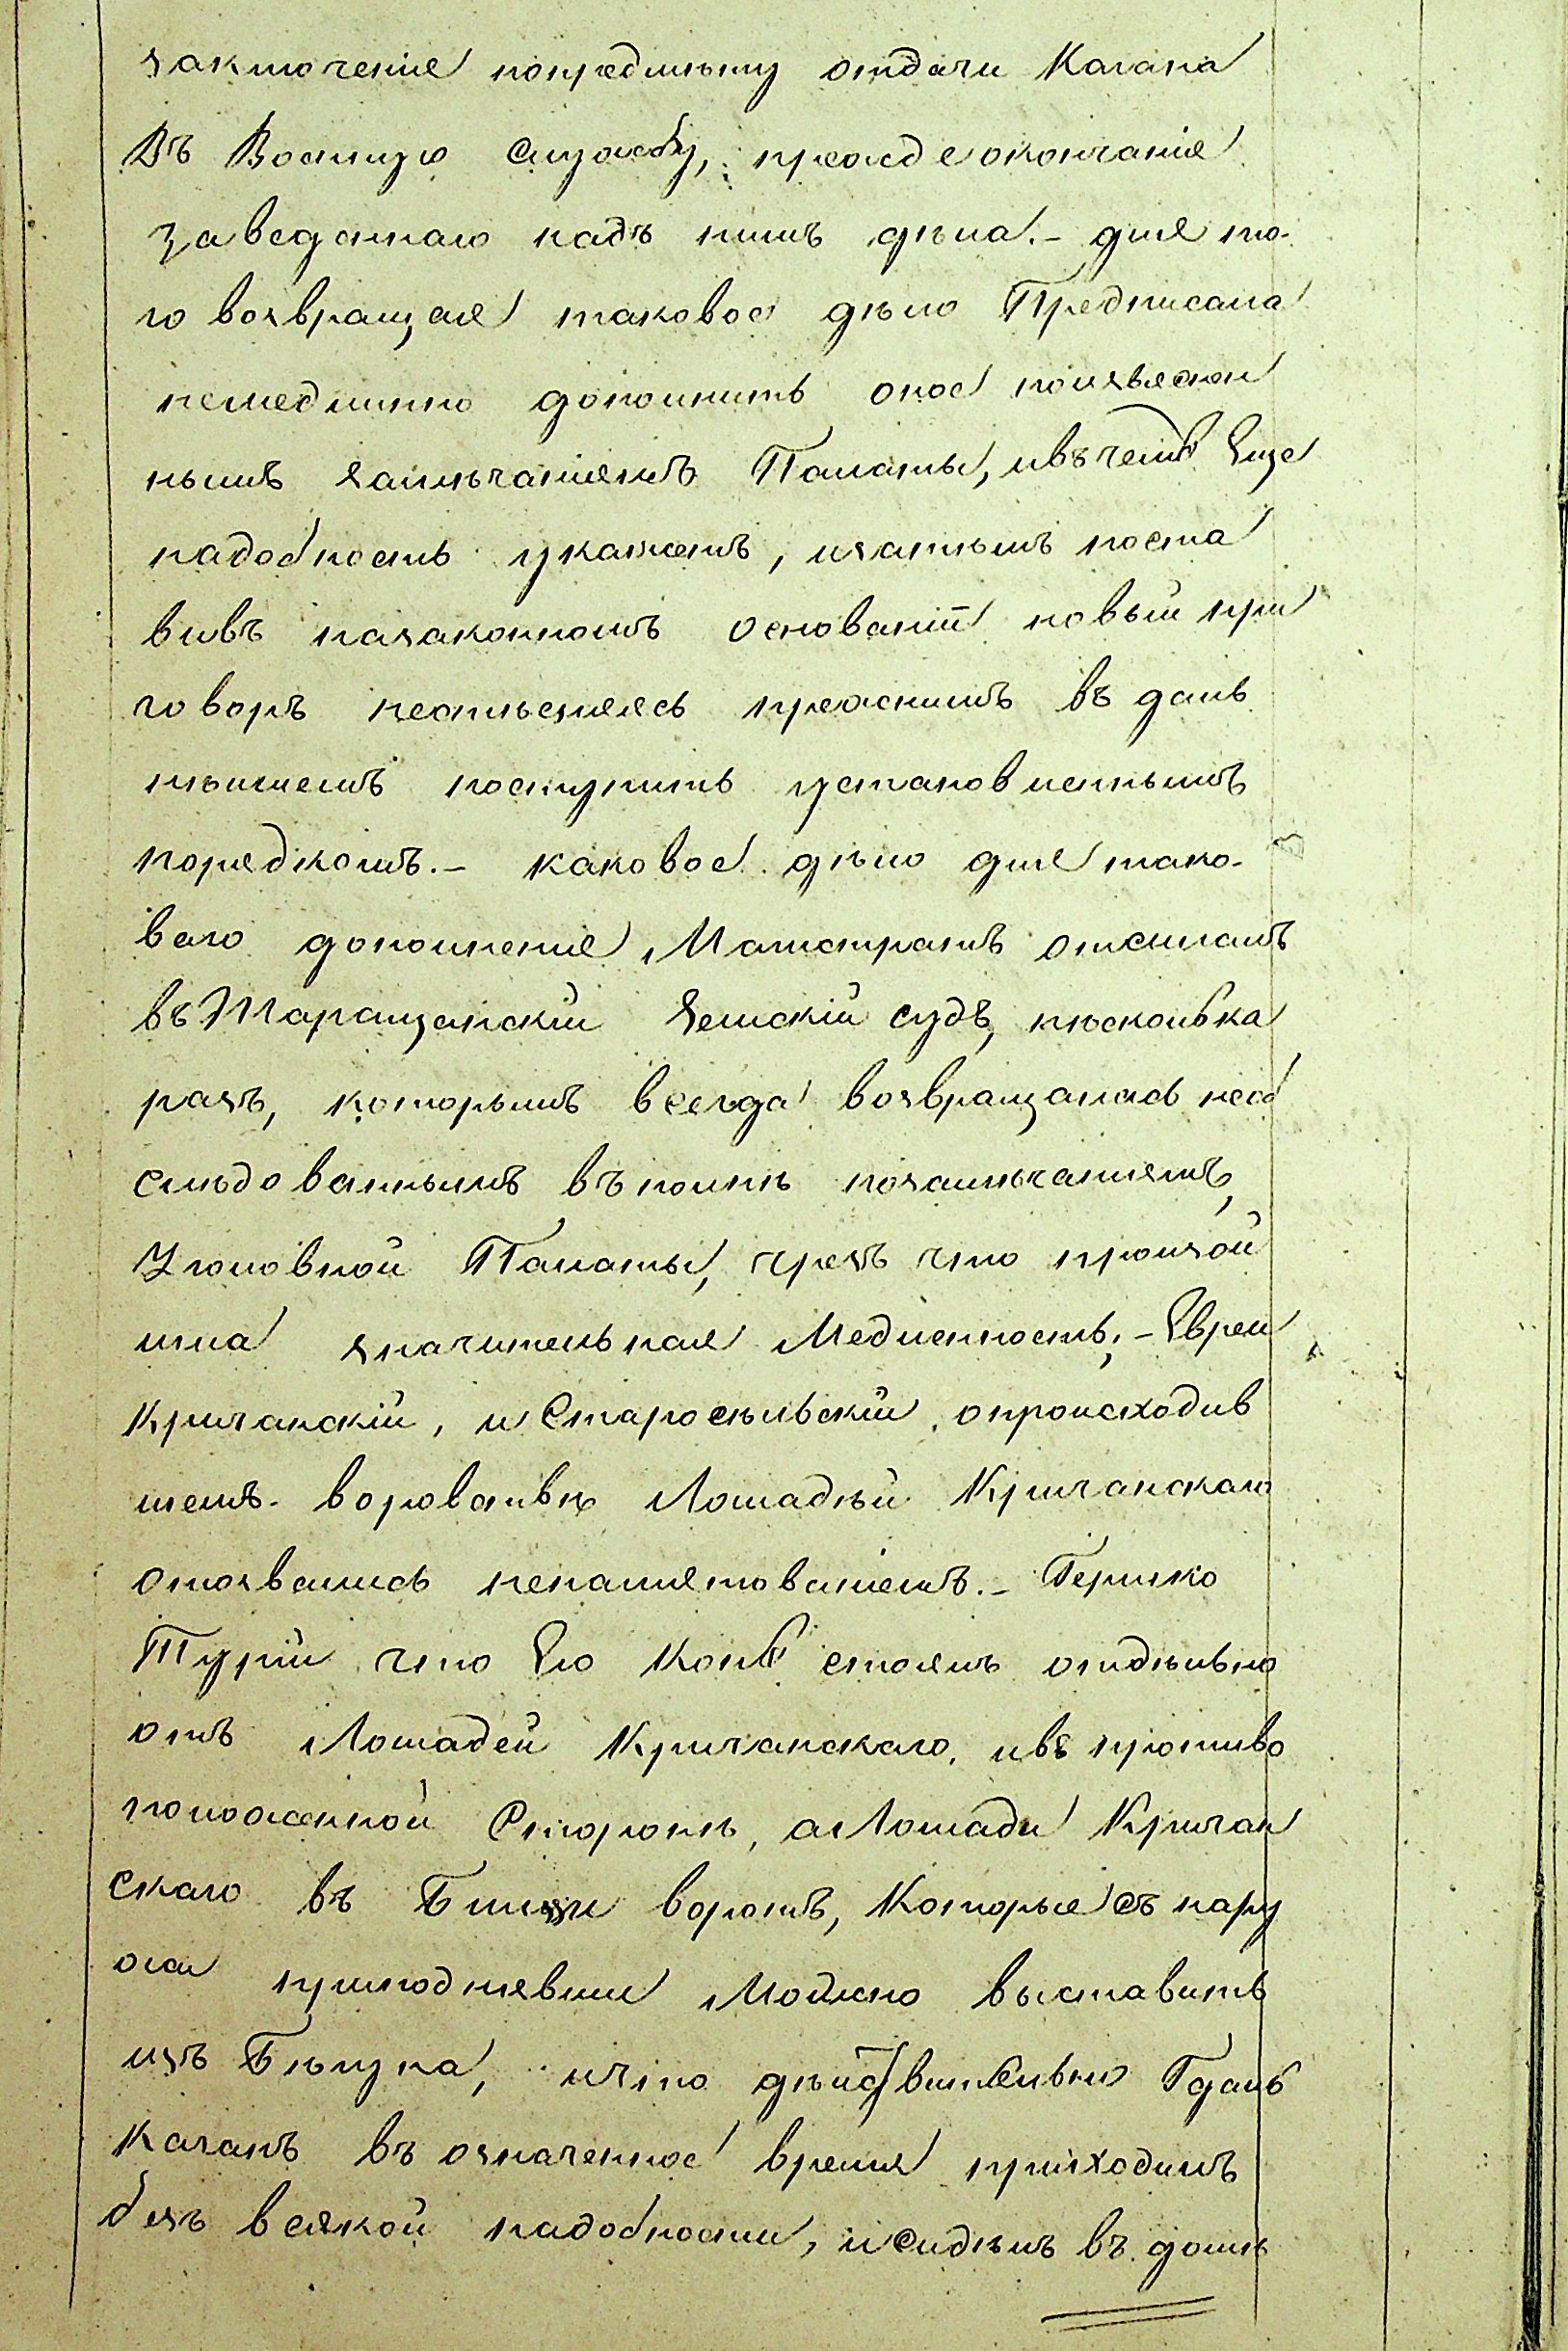 заключенія попредмѣту отдачи Кагана
Въ Военную службу, прежде окончанія
Заведеннаго надъ нимъ дѣла.- для то-
го возвращая таковое дѣло Предписала
немедленно дополнить оное поизъяснен
нымъ замѣчаніямъ Палаты, ивъ чемъ Еще
надобность укажетъ, изатѣмъ поста
вивъ назаконномъ основаніи новый при
говоръ нестѣсняясь прежнимъ въ даль
нѣйшемъ поступить установленнымъ
порядкомъ.- каковое дѣло для тако-
ваго дополненія Магистратъ отсылалъ
въ Таращанскій Земскій судъ, нѣсколько
разъ, которымъ всегда возвращалась необ
слѣдованнымъ въполнѣ позамѣчаніямъ,
Уголовной Палаты, чрезъ что произой
шла значительная Медленность;- Евреи
Кричанскій, и Старосѣльскій опроисходив
шемъ воровствѣ Лошадѣй Кричанскаго
отозвались непамятованіемъ.- Гершко
Турій что Его Конь стоялъ отдѣльно
отъ Лошадей Кричанскаго, ивъ противо
положенной Сторонѣ, аЛошади Кричан
скаго въ Близи воротъ, Которые съ нару
жи приподнявши Можно выставить
изъ Бѣгуна, ичто дѣйствительно Гдаль
Каганъ въ означенное время приходилъ
безъ всякой надобности, иСидѣлъ въ домѣ